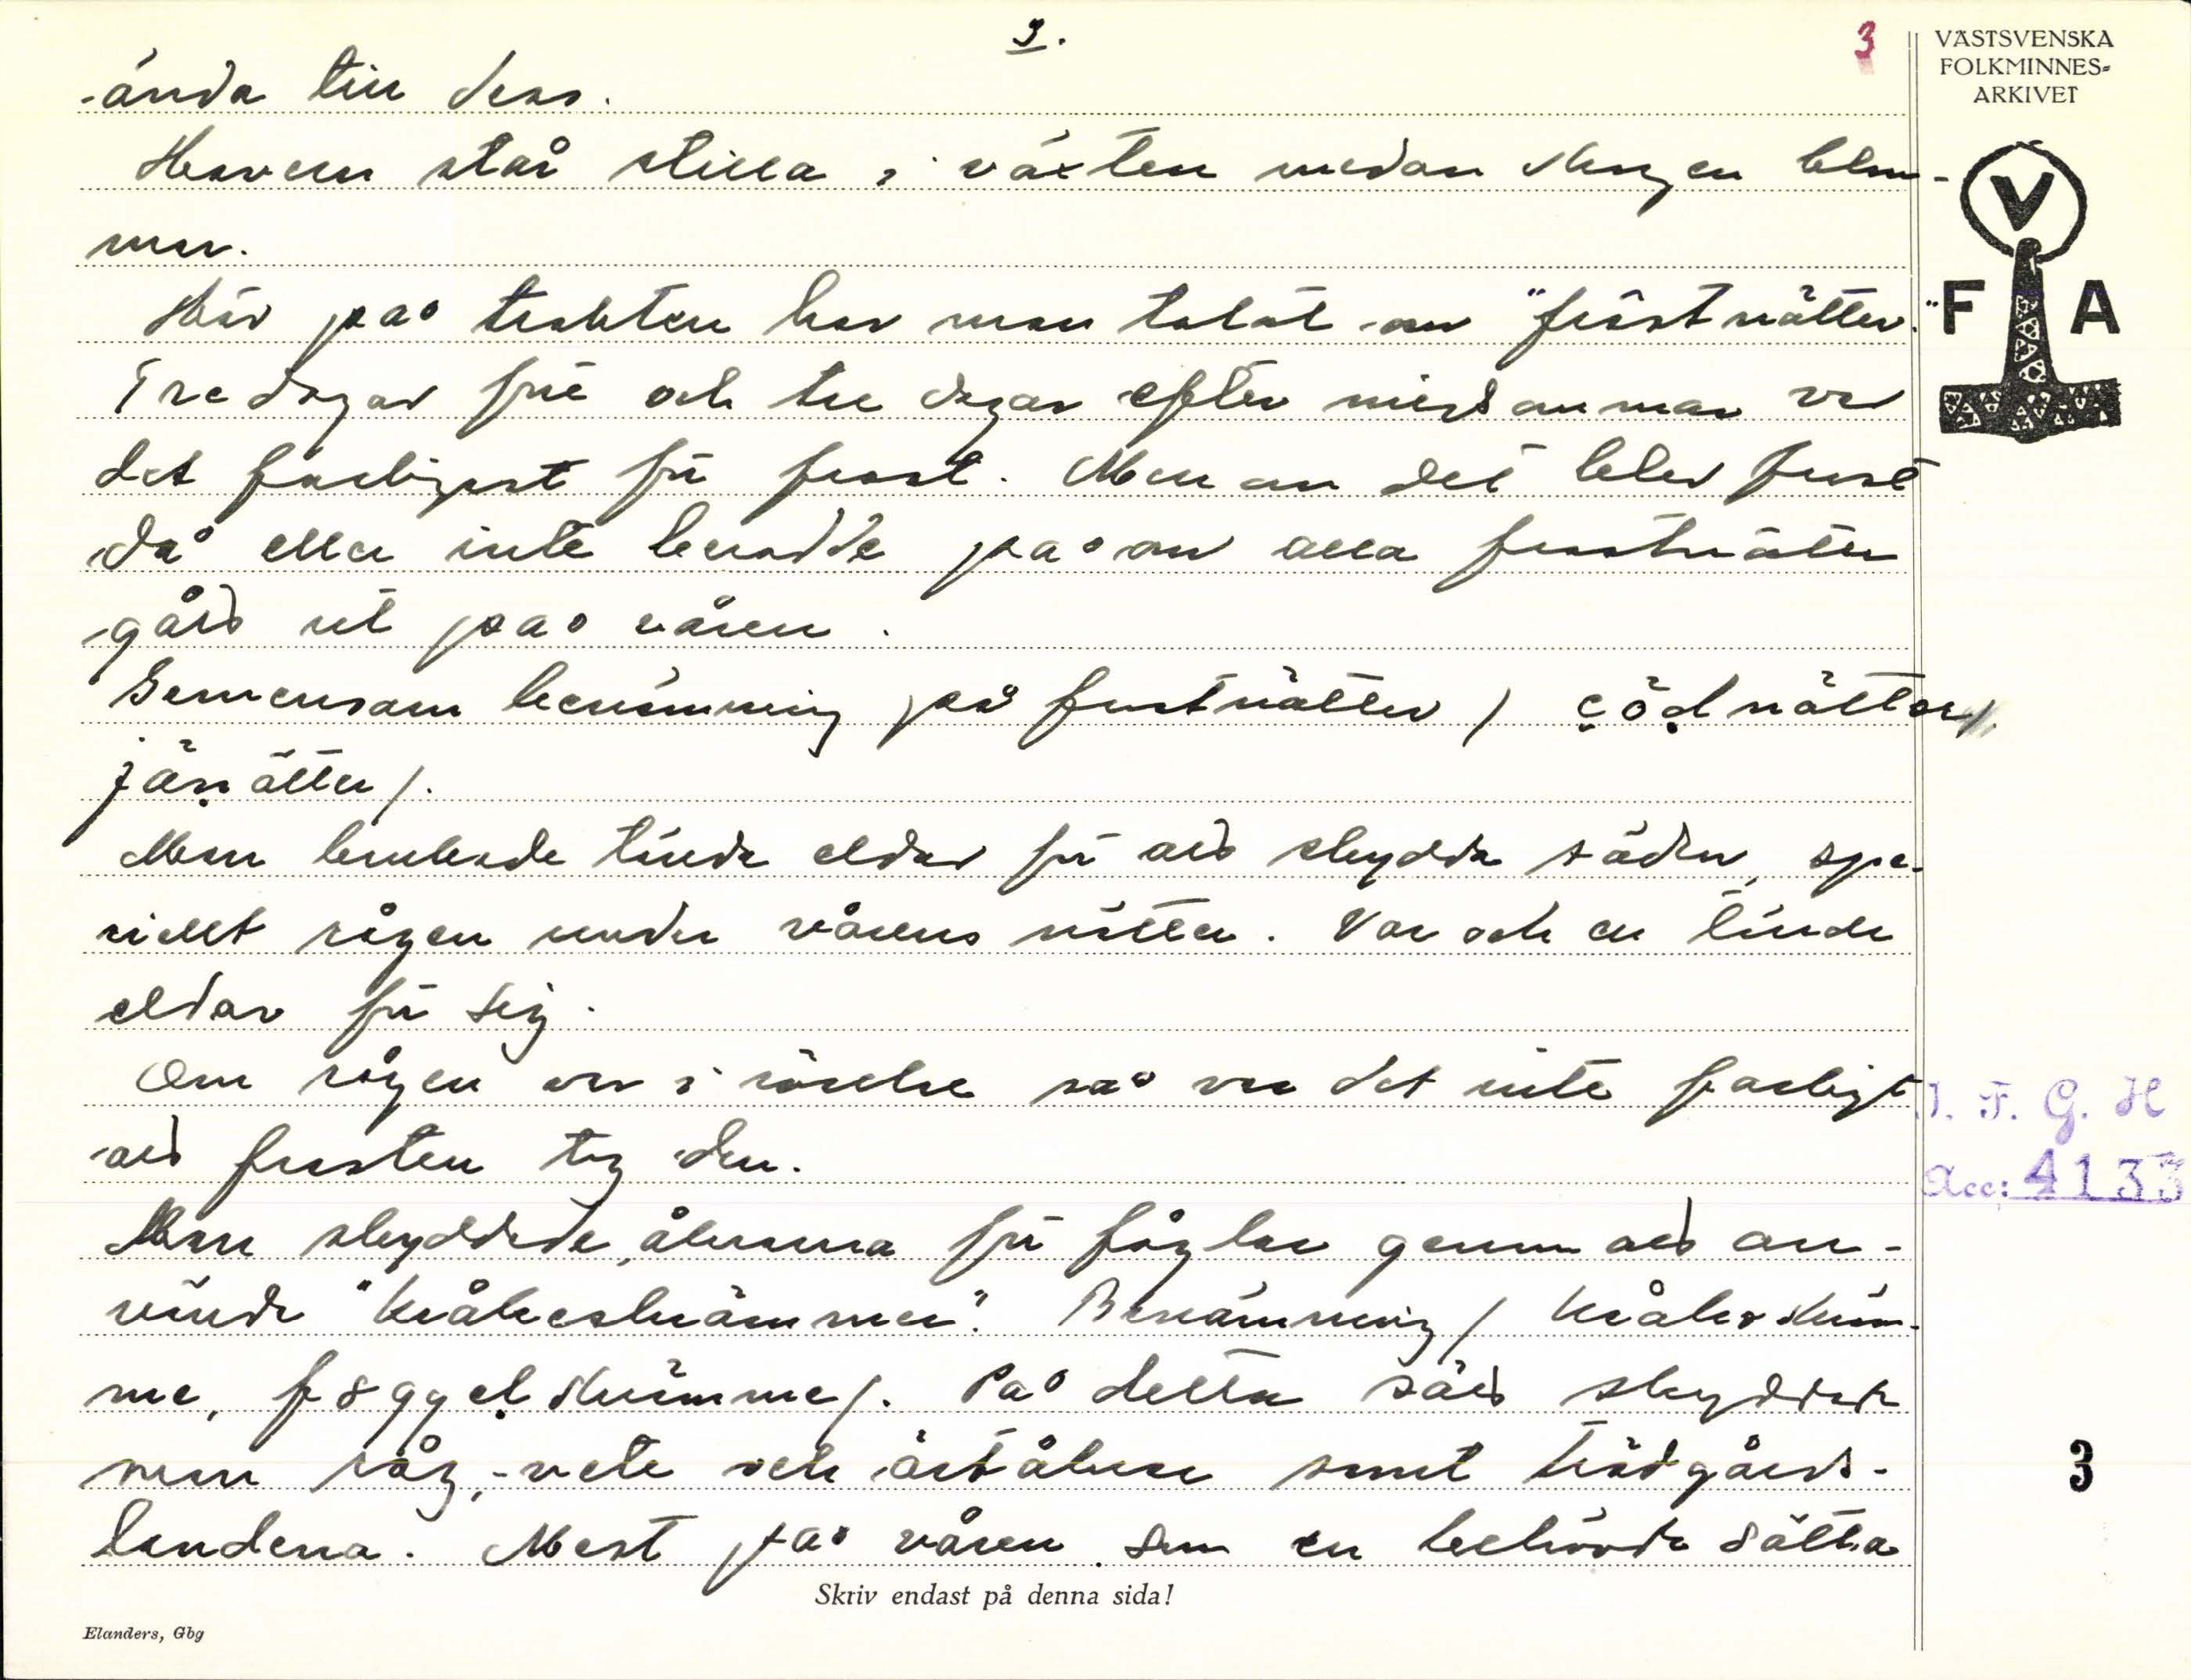 3.
3
VÄSTSVENSKA
FOLKMINNES-
ARKIVET
V
F A
ända till dess.
Havern står stilla i växten medan slingen blom-
mar.
Här på trakten har man talat om "frostnätter."
Tre dagar före och tre dagar efter midsommar var
det farligast för frost. Men om det blev frost
då eller inte berodde på om alla frostnätter
gått ut på våren.
Gemensam benämning på frostnätter / cödnättar/.
jänätter/.
Man brukade tända eldar för att skydda säden, spe-
ciellt rågen under vårens nätter. Var och en tände
eldar för sig.
Om rågen var i rörelse så var det inte farligt
att frosten tog den.
Man skyddade åkrarna för fåglar genom att an-
vända "kråkeskrämmer." Benämning / kråkeskräm-
me, foggelskrämme/. På detta sätt skyddade
man råg,- vete och ärtåkrar samt trädgårds-
landena. Mest på våren som en behövde sätta
I. F. G. H
Acc: 4133
3
Skriv endast på denna sida!
Elanders, Gbg